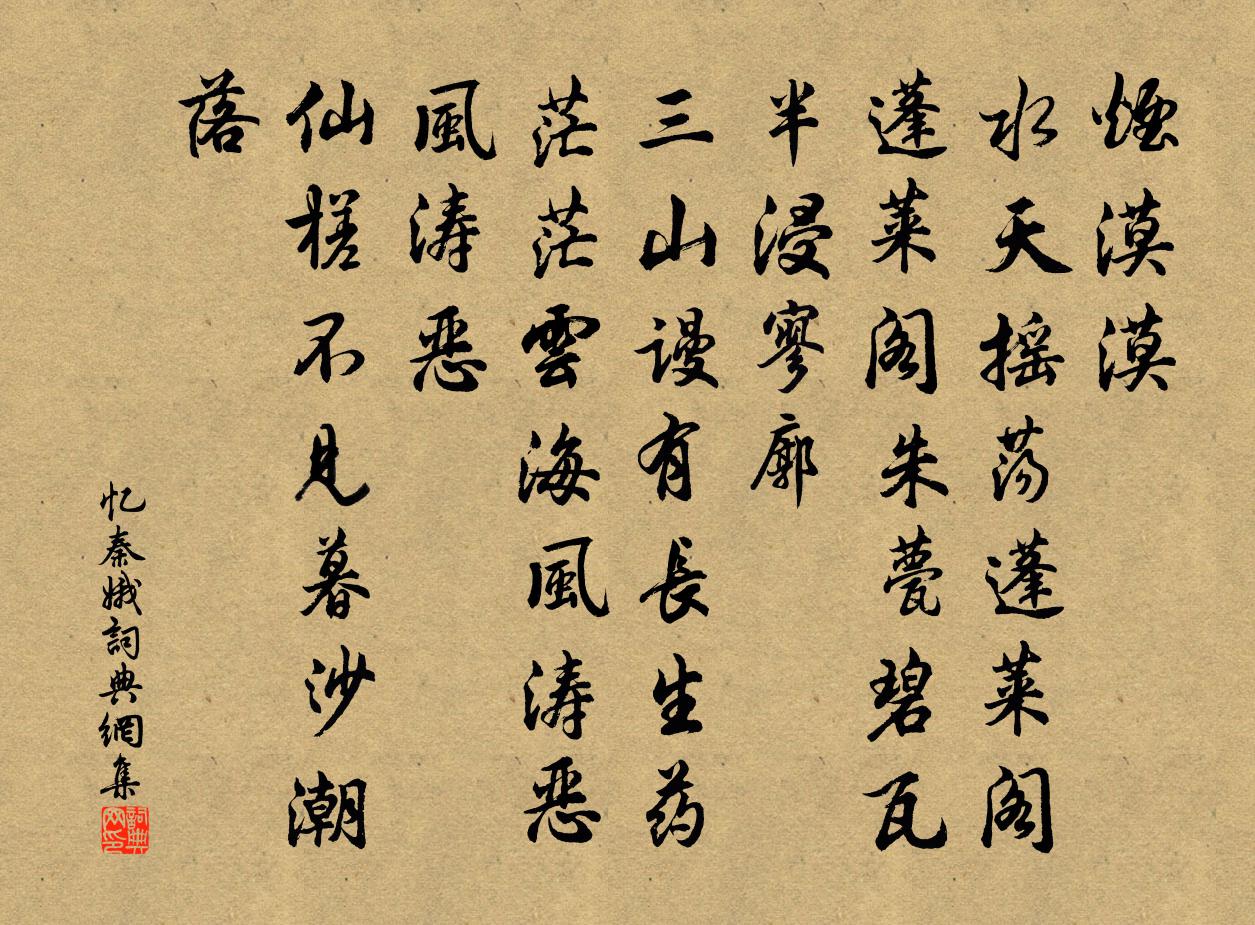 煙漠漠
水天摇荡蓬莱阁
蓬莱阁朱甍碧瓦
半浸寥廓
三山谩有長生药
茫茫雲海風涛恶
風涛恶
仙槎不見暮沙潮
落
忆秦娥詞典網集
詞典网印